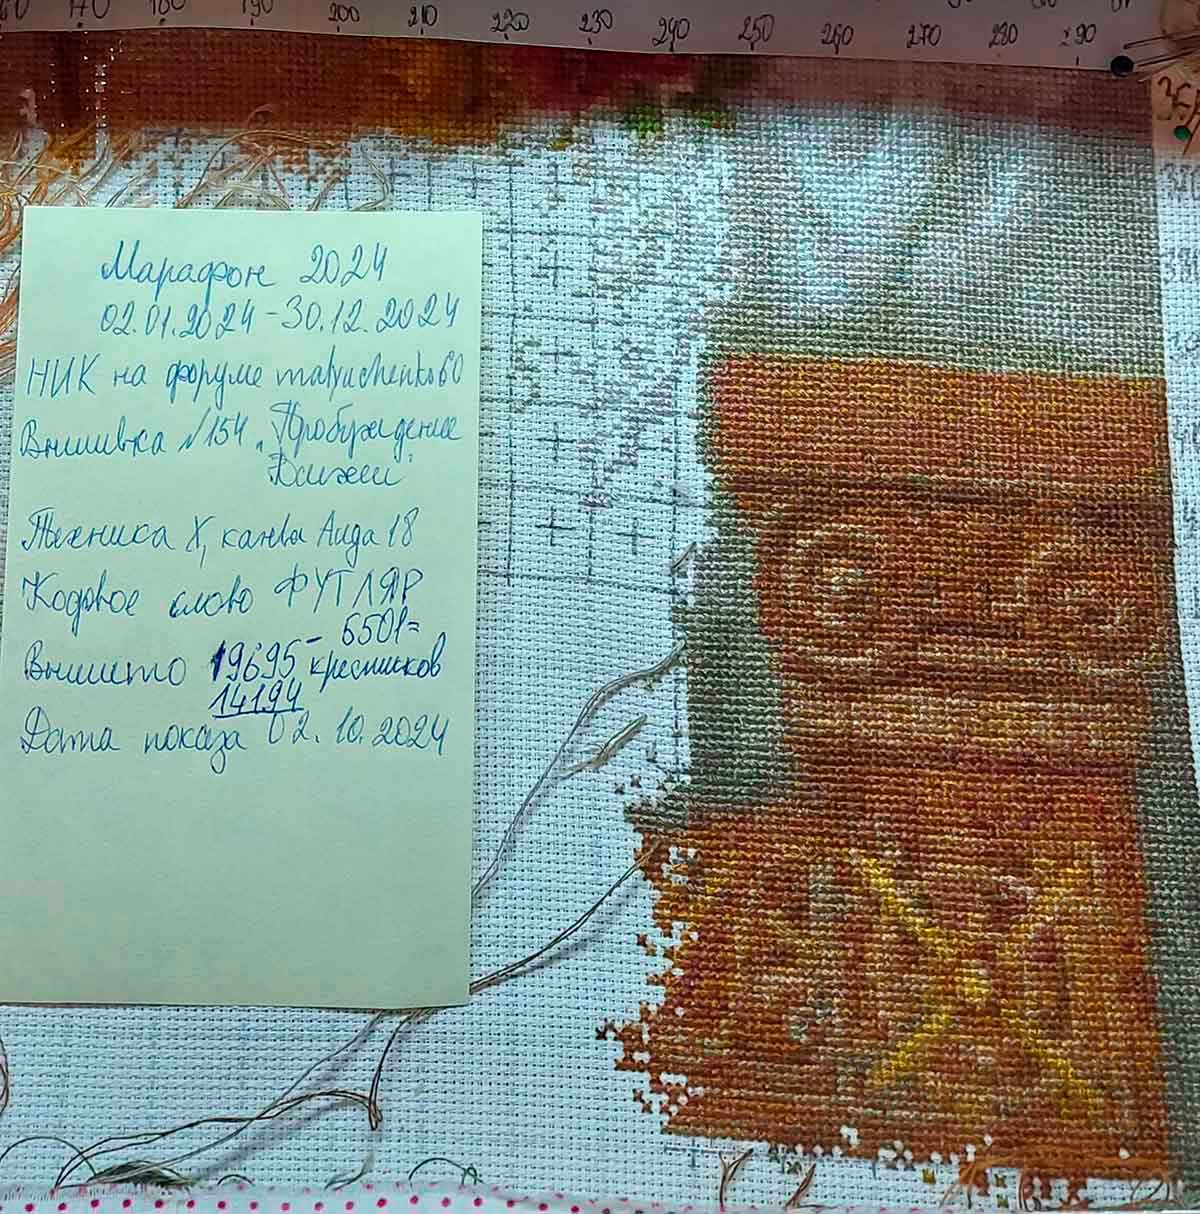 170 180 190 200 210 220 230 240 250 260 270 280 290
35
Марафон 2024
02.01.2024 - 30.12.2024
НИК на форуме
Вышивка №154 „Пробуждение
Техника X, канва Аида 18
Кодовое слово ФУТЛЯР
- 5501=
Вышито 19695 крестиков
14194
Дата показа 02.10.2024